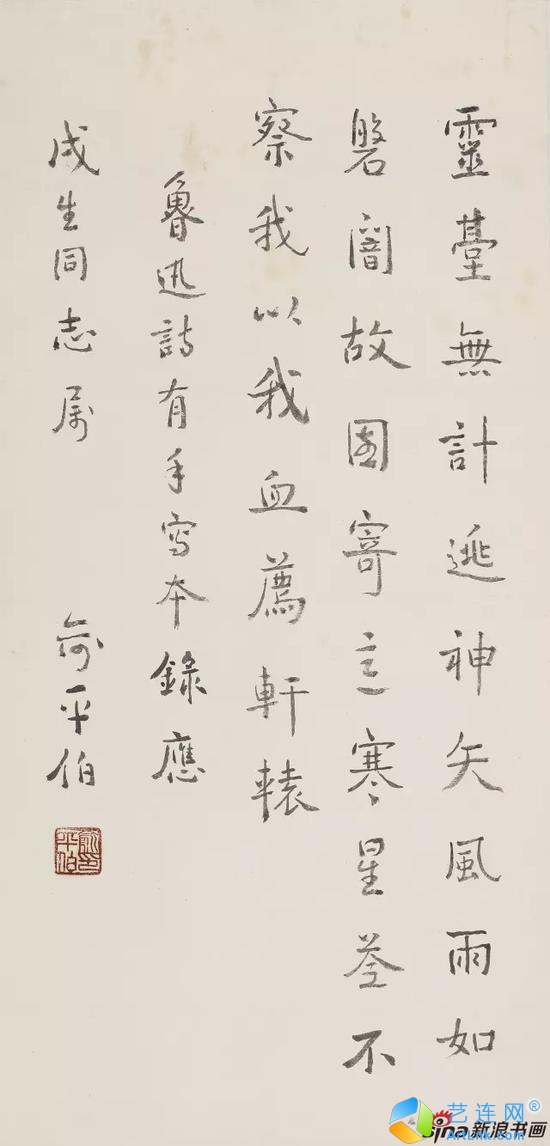 靈臺無計逃神矢風雨如
磐闇故園寄意寒星荃不
察我以我血薦軒轅
魯迅詩有手寫本錄應
成生同志属 俞平伯
艺连网®
sina新浪书画